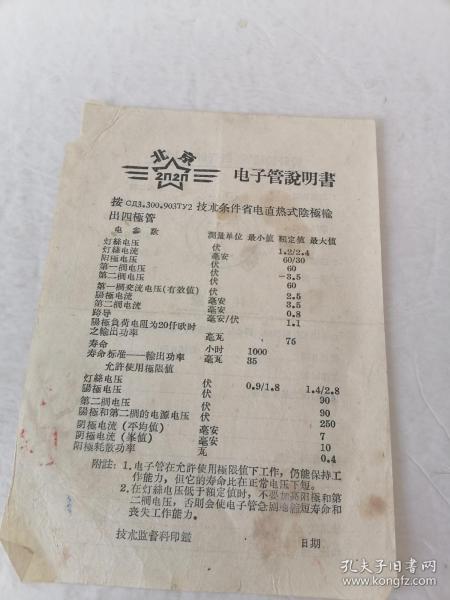 北京
2П2П
电子管說明書
按 СДЗ.300.903ТУ2 技术条件省电直热式陰極輸
出四極管
电 参 数 測量单位 最小值 額定值 最大值
灯絲电压 伏 1.2/2.4
灯絲电流 毫安 60/30
阳極电压 伏 60
第一柵电压 伏 -3.5
第二柵电压 伏 60
第一柵交流电压(有效值) 伏 2.5
陽極电流 毫安 3.5
第二柵电流 毫安 0.8
跨导 毫安/伏 1.1
陽極負荷电阻为20仟欧时
之輸出功率 毫瓦 75
寿命 小时 1000
寿命标准——輸出功率 毫瓦 35
允許使用極限值
灯絲电压 伏 0.9/1.8 1.4/2.8
陽極电压 伏 90
第二柵电压 伏 90
陽極和第二柵的电源电压 伏 250
阴極电流 (平均值) 毫安 7
阴極电流 (峯值) 毫安 10
阳極耗散功率 瓦 0.4
附註:1.电子管在允許使用極限值下工作,仍能保持工
作能力,但它的寿命比在正常电压下短。
2.在灯絲电压低于額定值时,不要加高阳極和第
二柵电压,否則会使电子管急剧地縮短寿命和
丧失工作能力。
技术监督科印鑑 日期
孔夫子旧书网